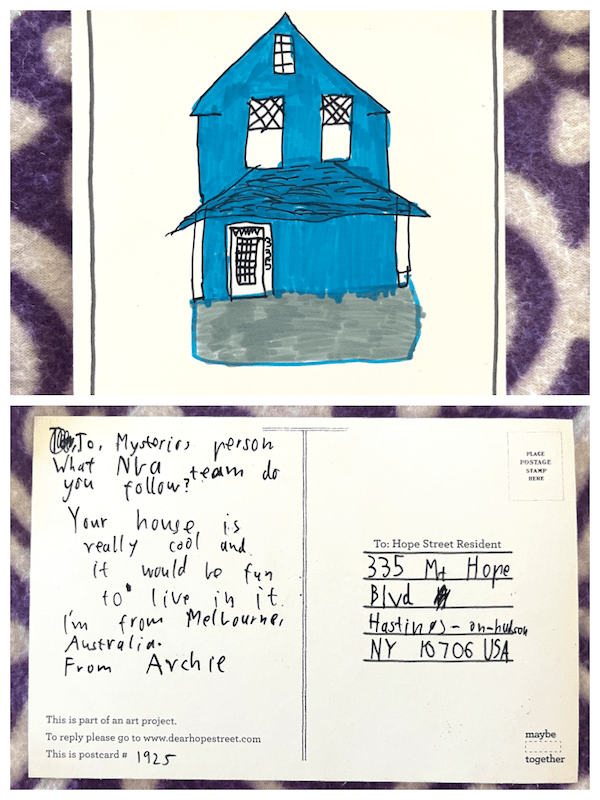 335
To, Mysterios person
What Nba team do
you follow?
Your house is
really cool and
it would be fun
to live in it.
I'm from Melbourne,
Australia.
From Archie
This is part of an art project.
To reply please go to www.dearhopestreet.com
This is postcard # 1925
PLACE
POSTAGE
STAMP
HERE
To: Hope Street Resident
335 Mt Hope
Blvd
Hastings-on-hudson
NY 10706 USA
maybe
together